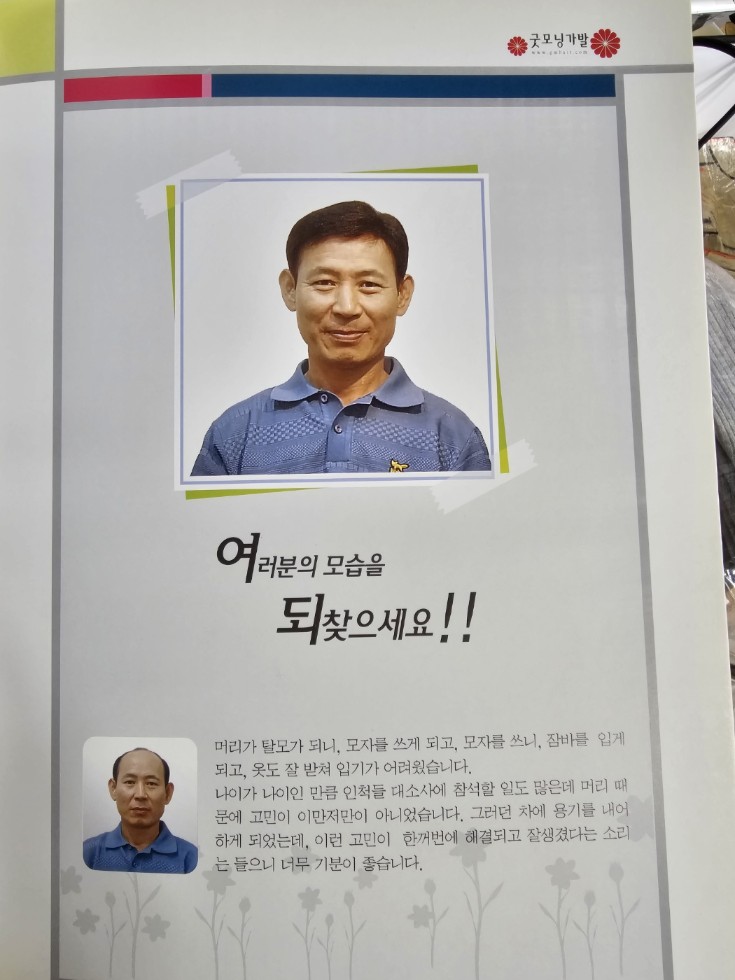 굿모닝가발
여러분의 모습을
되찾으세요!!
머리가 탈모가 되니, 모자를 쓰게 되고, 모자를 쓰니, 잠바를 입게
되고, 옷도 잘 받쳐 입기가 어려웠습니다.
나이가 나이인 만큼 인척들 대소사에 참석할 일도 많은데 머리 때
문에 고민이 이만저만이 아니었습니다. 그러던 차에 용기를 내어
하게 되었는데, 이런 고민이 한꺼번에 해결되고 잘생겼다는 소리
는 들으니 너무 기분이 좋습니다.